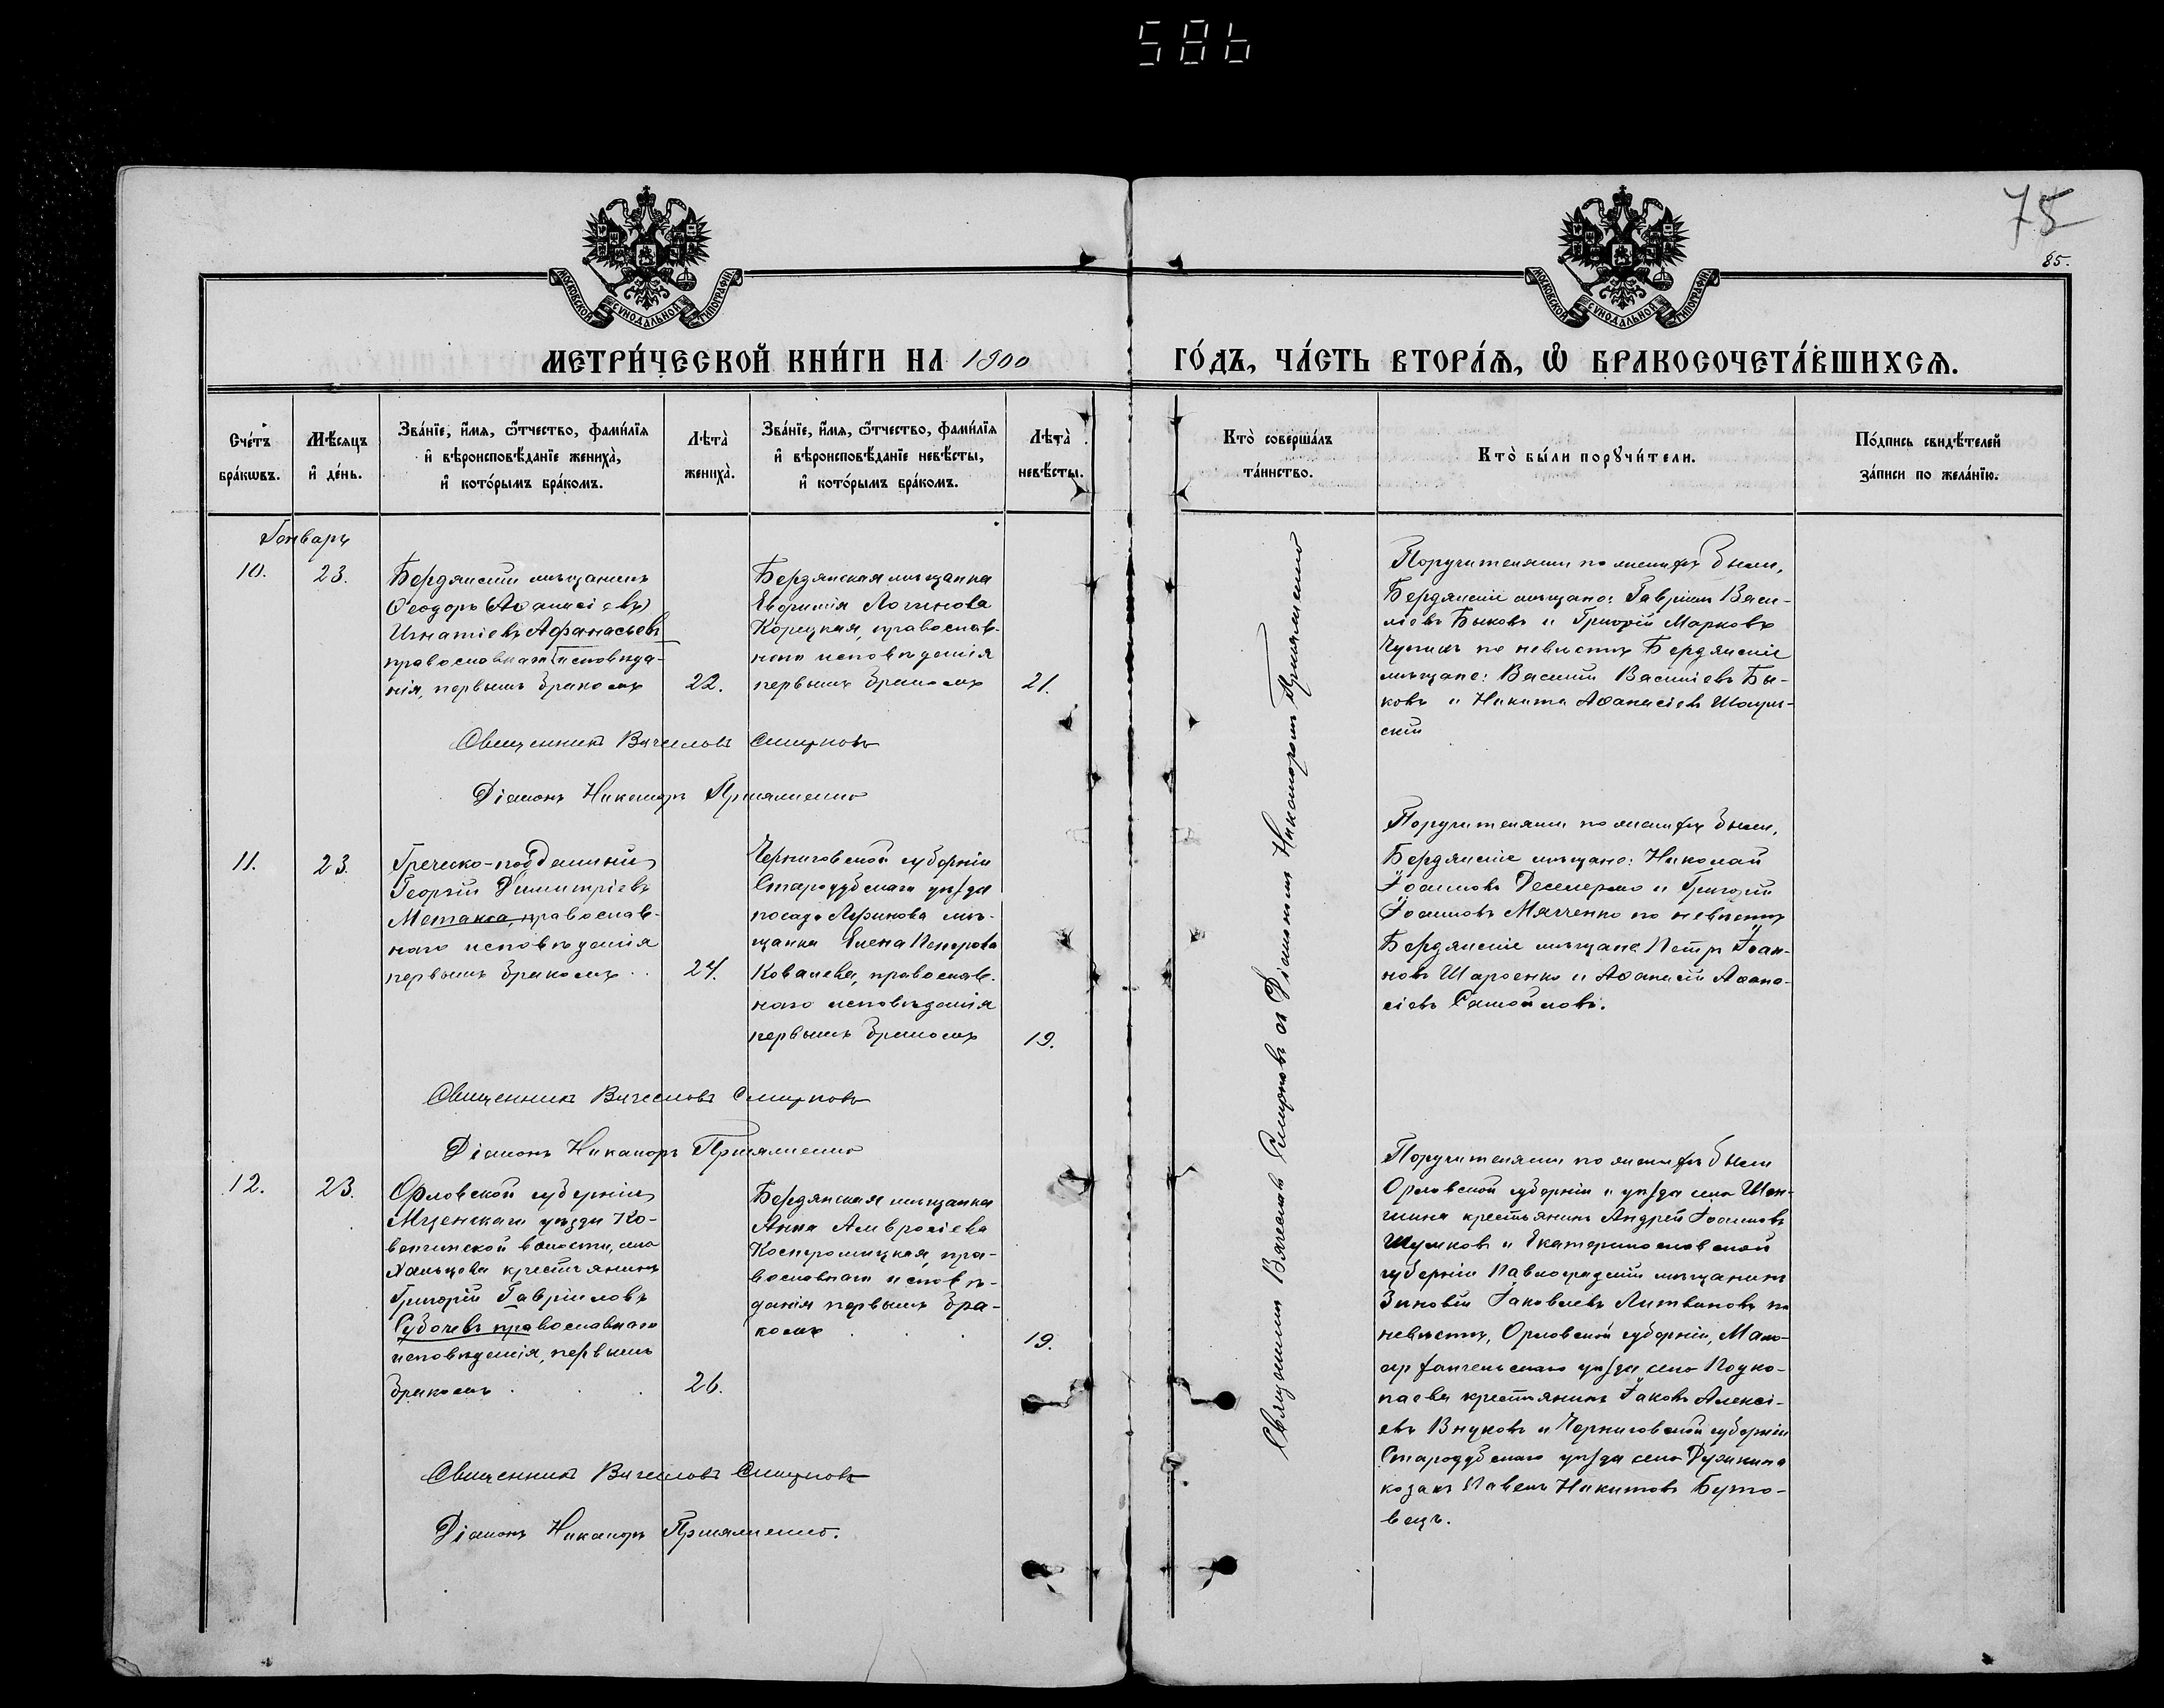 586
75
85.
МОСКОВСКОЙ СѴНОДАЛЬНОЙ ТИПОГРАФІИ
МОСКОВСКОЙ СѴНОДАЛЬНОЙ ТИПОГРАФІИ
МЕТРИ́ЧЕСКОЙ КНИ́ГИ НА 1900
ГО́ДЪ, ЧА́СТЬ ВТОРА́Я, Ѡ҆ БРАКОСОЧЕТА́ВШИХСЯ.
Сче́тъ
бра́кѡвъ.
Мѣ́сяцъ
и҆ де́нь.
Зва́нїе, и҆́мя, ѻ҆́тчество, фами́лїя
и҆ вѣроисповѣ́данїе жениха̀,
и҆ кото́рымъ бра́комъ.
Лѣта̀
жениха̀.
Зва́нїе, и҆́мя, ѻ҆́тчество, фами́лїя
и҆ вѣроисповѣ́данїе невѣ́сты,
и҆ кото́рымъ бра́комъ.
Лѣта̀
невѣ́сты.
Кто̀ соверша́лъ
та́инство.
Кто̀ бы́ли порꙋчи́тели.
По́дпись свидѣ́телей
за́писи по жела́нїю.
Январь
10.
23.
Бердянскій мѣщанинъ
Ѳеодоръ (Аѳанасіевъ)
Игнатіевъ Афанасьевъ
православнаго исповѣда-
нія, первымъ бракомъ
22.
Бердянская мѣщанка
Евфимія Логинова
Корецкая, православ-
наго исповѣданія
первымъ бракомъ
21.
Поручителями по женихѣ были,
Бердянскіе мѣщане: Гавріилъ Васи-
ліевъ Быковъ и Григорій Марковъ
по невѣстѣ Бердянскіе
мѣщане: Василій Василіевъ Бы-
ковъ и Никита Аѳанасіевъ
скій
Священникъ Вячеславъ Смирновъ
Діаконъ Никаноръ
11.
23.
Греческо-подданный
Георгій Димитріевъ
Метакса, православ-
наго исповѣданія
первымъ бракомъ
24.
Черниговской губерніи
Стародубскаго уѣзда
посада мѣ-
щанка Елена Петрова
Ковалева, православ-
наго исповѣданія
первымъ бракомъ
19.
Поручителями по женихѣ были,
Бердянскіе мѣщане: Николай
Іоанновъ и Григорій
Іоанновъ Мягченко по невѣстѣ
Бердянскіе мѣщане Петръ Іоан-
новъ и Аѳанасій Аѳана-
сіевъ Самойловъ.
Священникъ Вячеславъ Смирновъ
Діаконъ Никаноръ
12.
23.
Орловской губерніи
Мценскаго уѣзда
волости, села
крестьянинъ
Григорій Гавріиловъ
Субочевъ православнаго
исповѣданія, первымъ
бракомъ
26.
Бердянская мѣщанка
Анна Амвросіева
Костромицкая, пра-
вославнаго исповѣ-
данія первымъ бра-
комъ
19.
Поручителями по женихѣ были
Орловской губерніи и уѣзда села Шен-
шина крестьянинъ Андрей Іоанновъ
и Екатеринославской
губерніи Павлоградскій мѣщанинъ
Зиновій Іаковлевъ Литвиновъ по
невѣстѣ, Орловской губерніи, Мало-
архангельскаго уѣзда села Подко-
паева крестьянинъ Іаковъ Алексі-
евъ Внуковъ и Черниговской губерніи
Стародубскаго уѣзда села
козакъ Павелъ Никитовъ Буто-
вецъ.
Священникъ Вячеславъ Смирновъ
Діаконъ Никаноръ
Священникъ Вячеславъ Смирновъ съ Діакономъ Никаноромъ